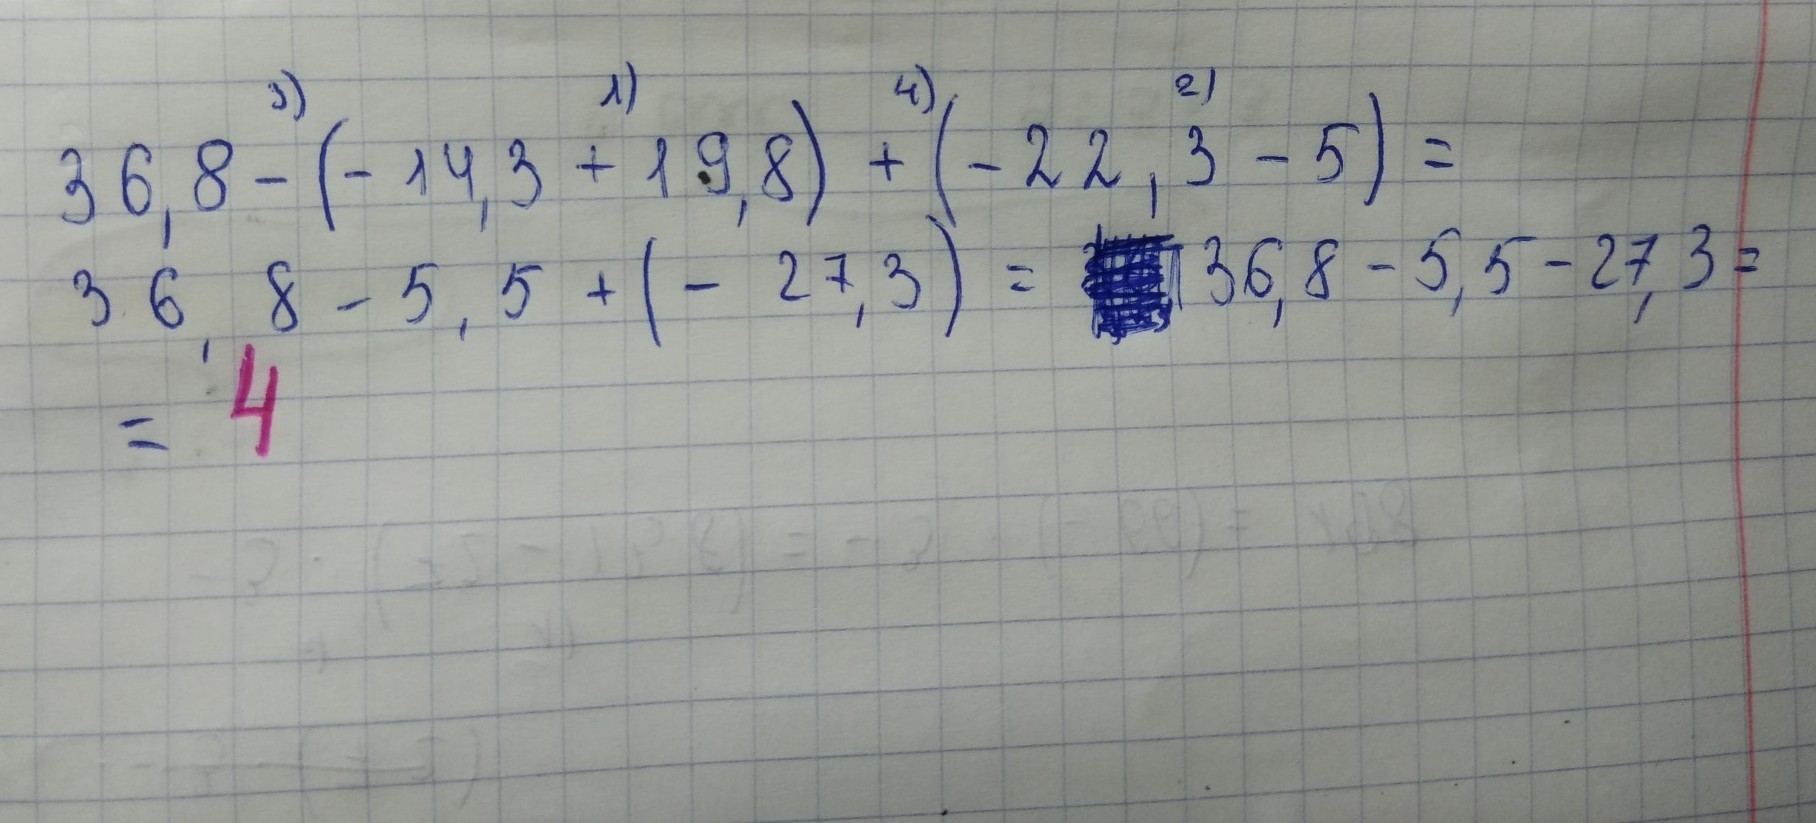 3) 1) 4) 2)
36,8 - (- 14,3 + 19,8) + (- 22,3 - 5) =
36,8 - 5,5 + (- 27,3) = 36,8 - 5,5 - 27,3 =
= 4